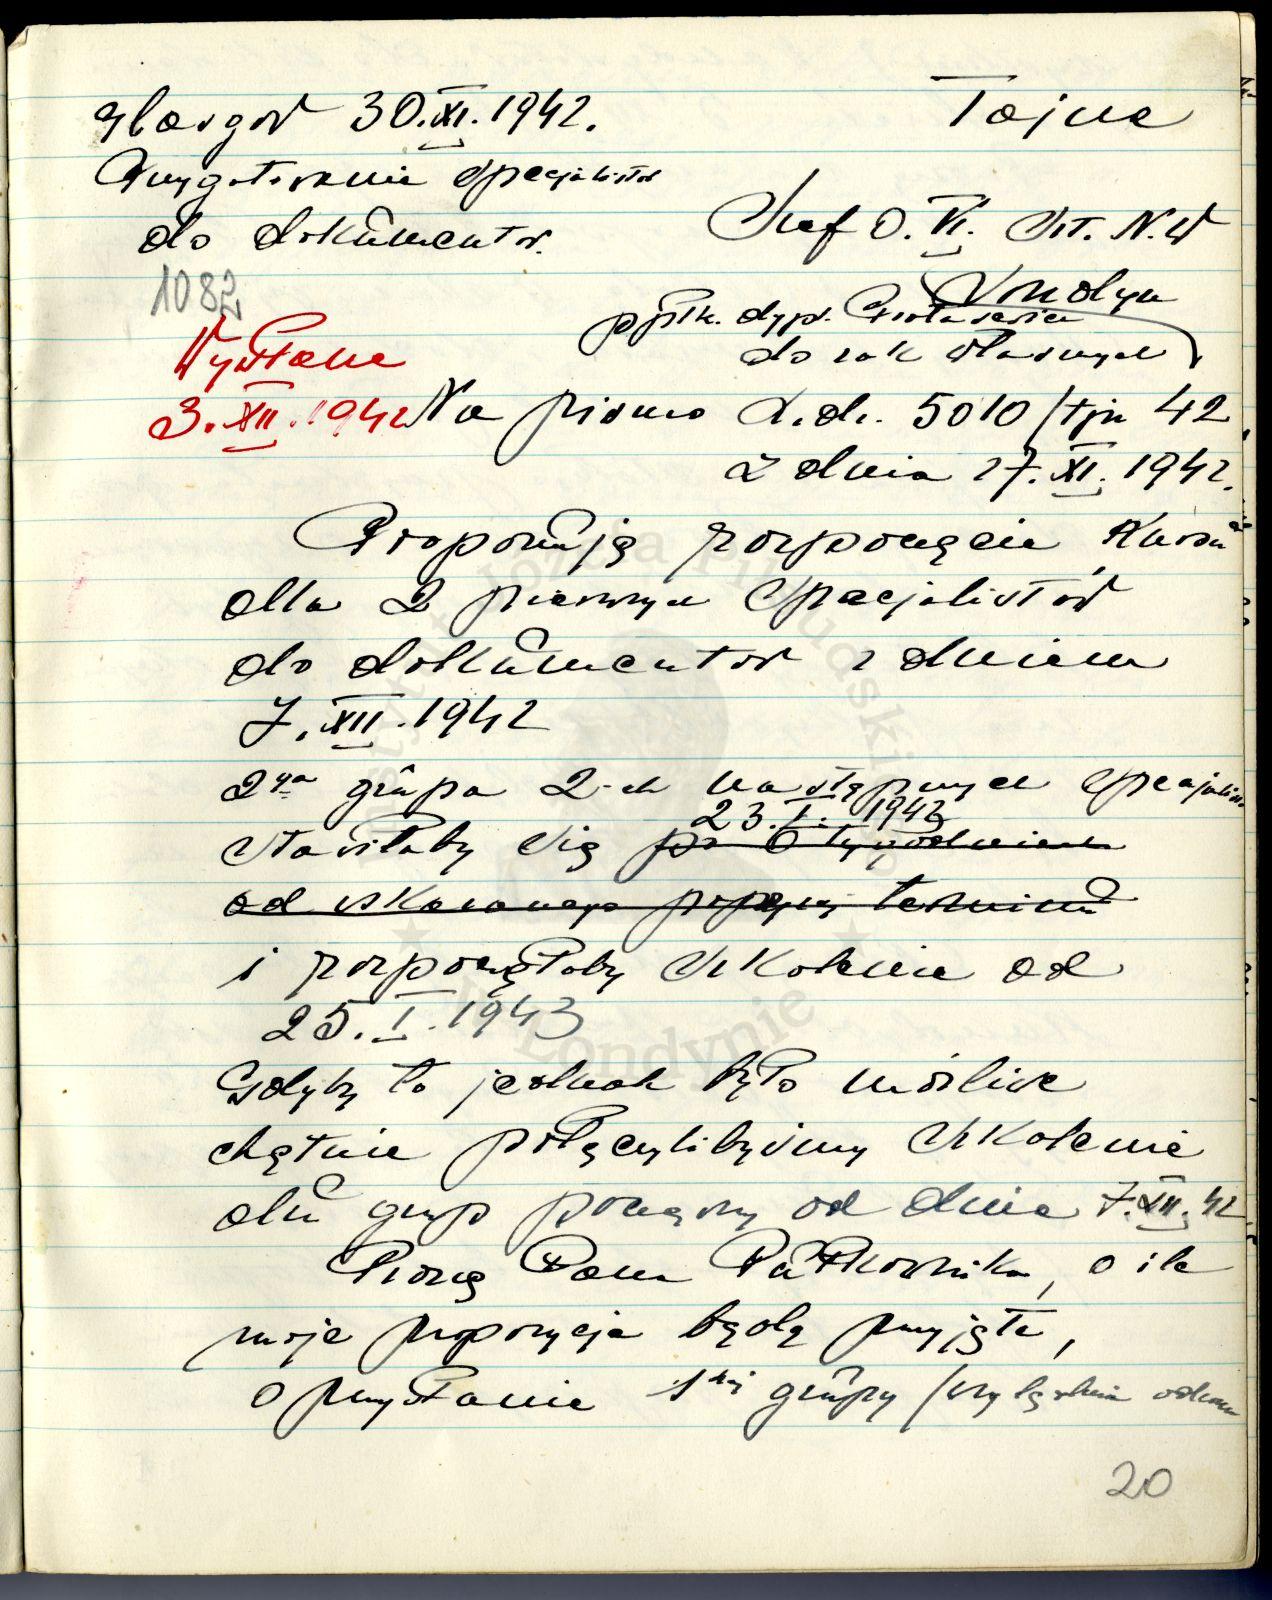 Glasgow 30.XI.1942.
Tajne
Przygotowanie specjalistów
do dokumentów.
Szef O.VI. Szt. N.W
1082
Londyn
ppłk. dypl. Protasewicz
do rąk własnych
Wysłane
3.XII.1942
Na pismo L.dz. 5010/tjn 42
z dnia 27.XI.1942.
Proponuję rozpoczęcie kursu
dla 2 pierwszych specjalistów
do dokumentów z dniem
7.XII.1942
2ga grupa 2-ch następnych specjalistów
23.I.1943
stawiłaby się po 6 tygodniach
od wskazanego terminu
i rozpoczęłaby szkolenie od
25.I.1943
Gdyby to jednak było możliwe
chętnie połączylibyśmy szkolenie
dwu grup począwszy od dnia 7.XII.42
Proszę Pana Pułkownika, o ile
moje propozycje będą przyjęte,
o przysłanie 1szej grupy (względnie
20
Józefa Piłsudskiego
w Londynie